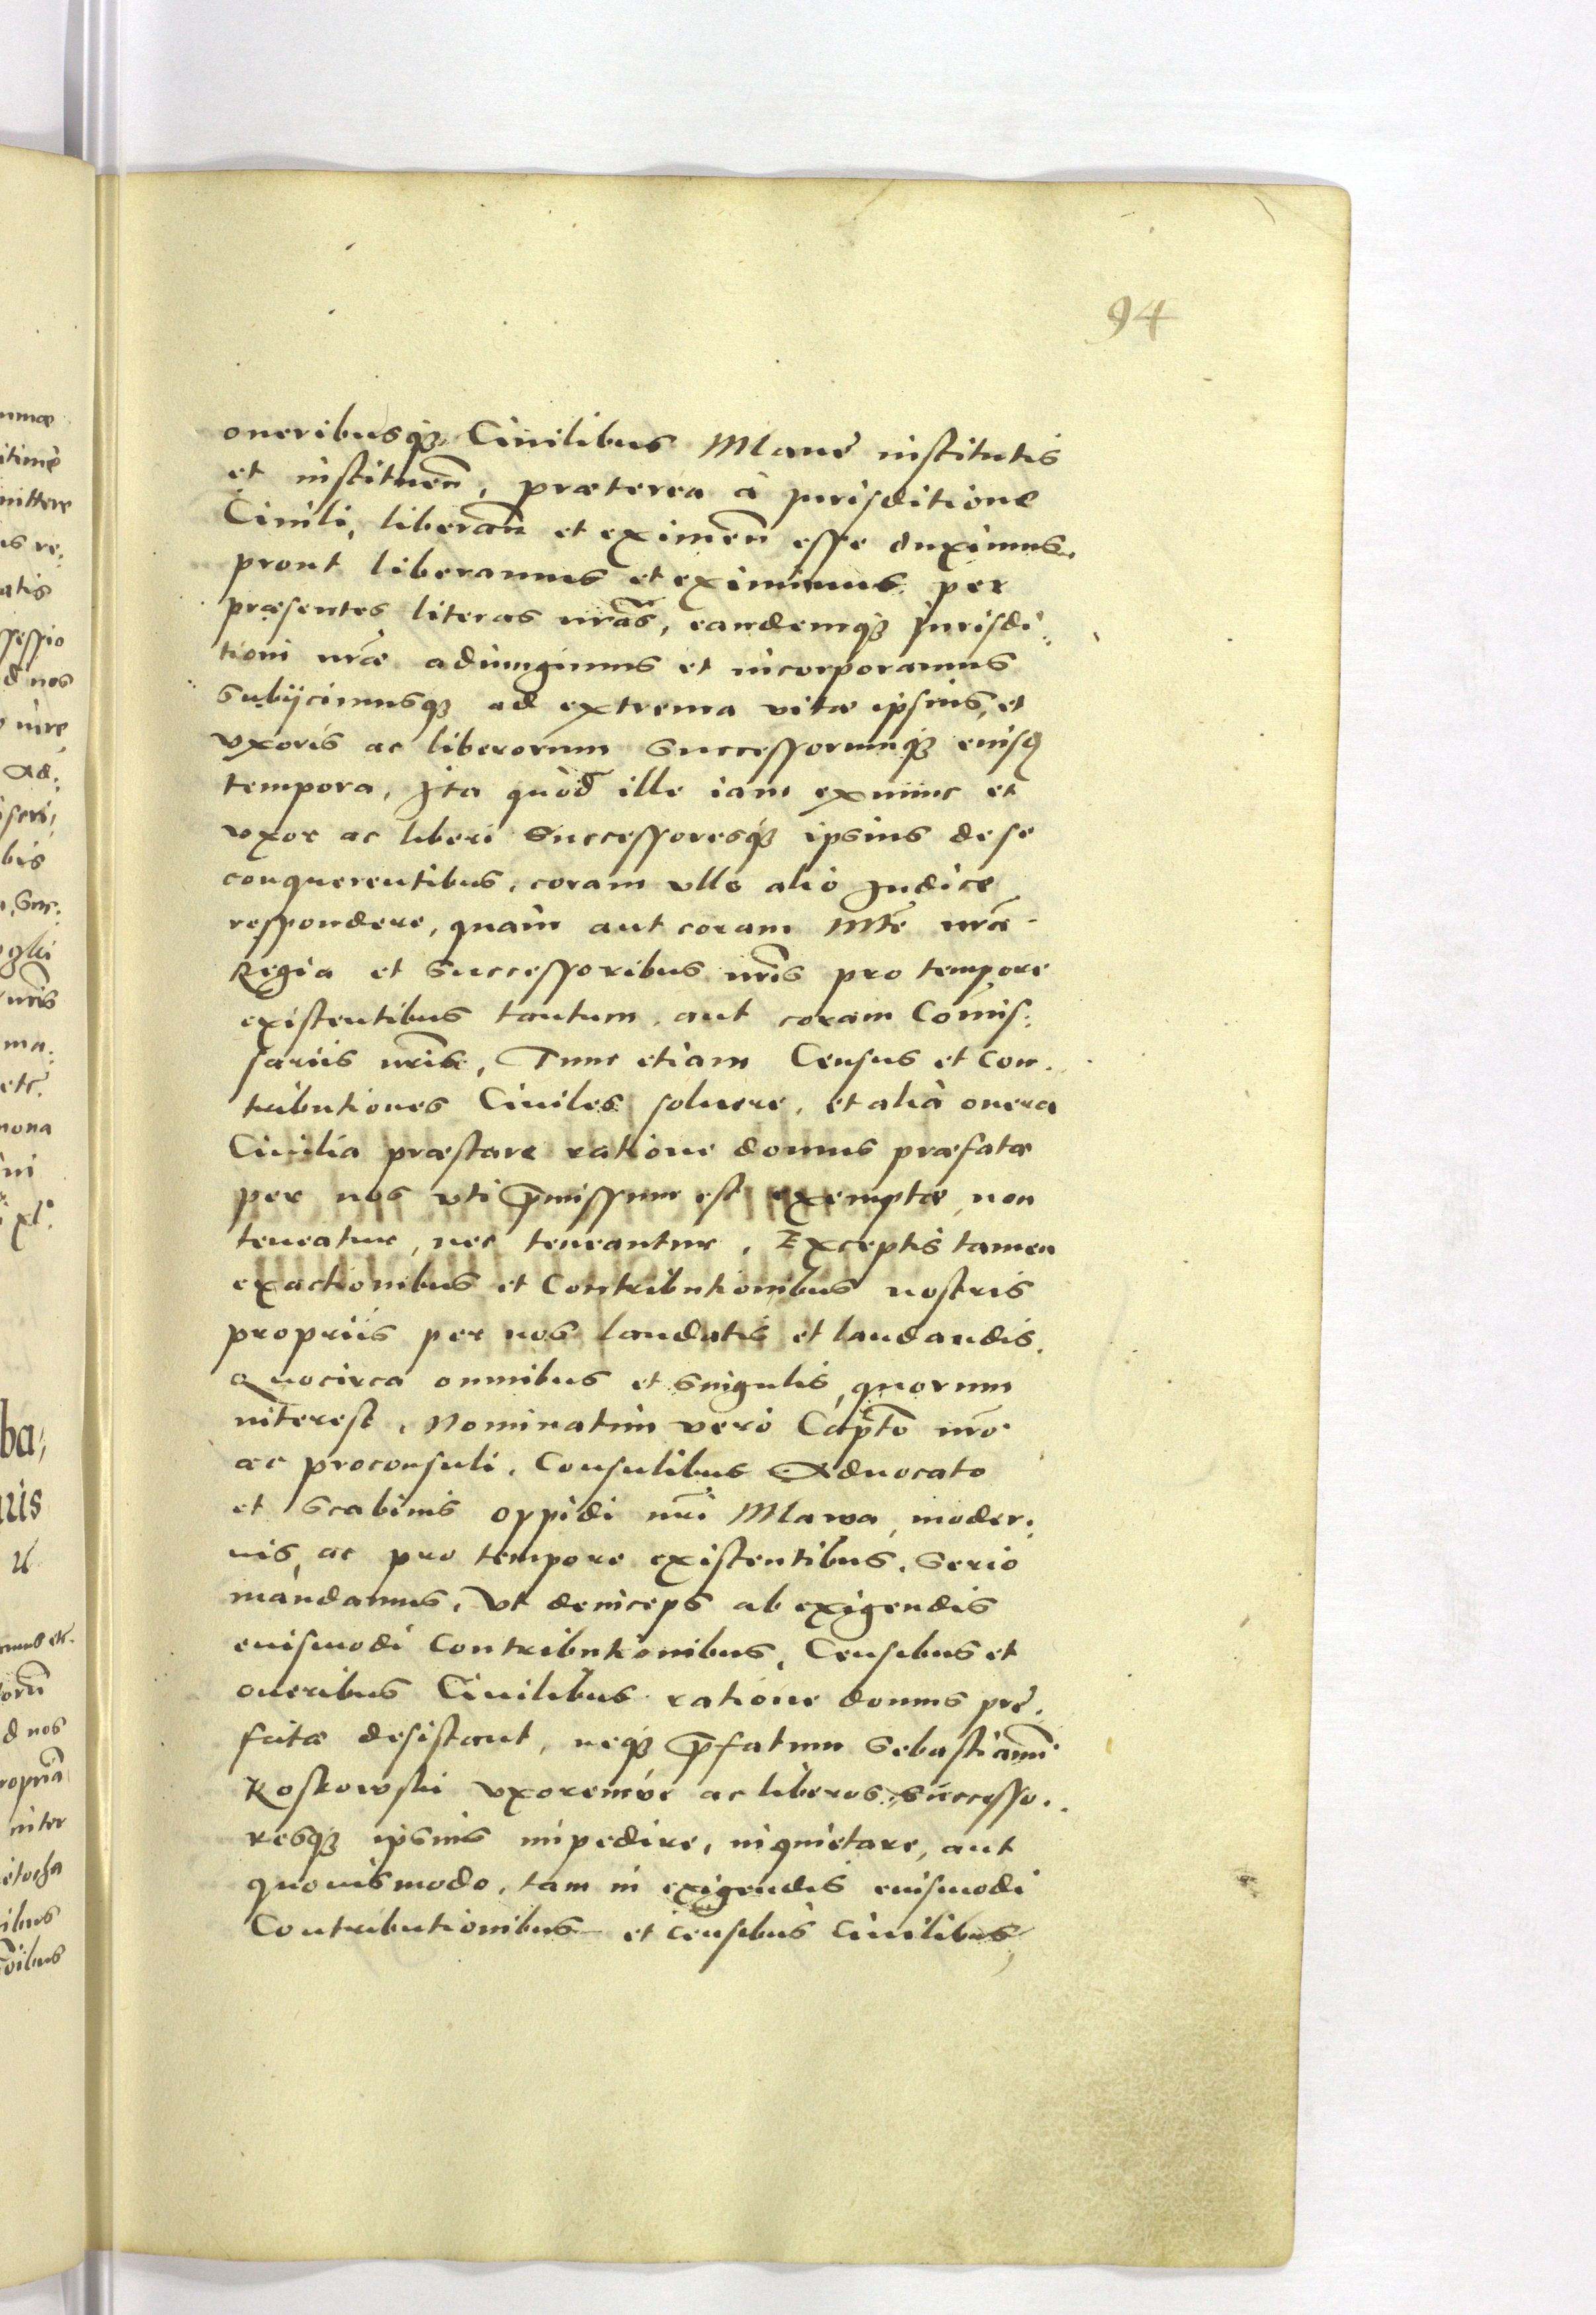 94
oneribusq3 Ciuilibus Mlauẽ institutis
et instituen̄, præterea à Jurisditione
Ciuili, liberan̄ et eximen̄ esse duximus.
prout liberamus et eximimus per
præsentes literas nr̄as, eandemq3 Jurisdi:
tioni nr̄æ adiungimus et incorporamus
Subijcimusq3 ad extrema vitæ ipsius, et
vxoris ac liberorum Successorumq3 eiusd
tempora, Ita quòd ille iam exnunc et
vxor ac liberi Successoresq3 ipsius de se
conquerentibus, coram vllo alio Judice
respondere, quàm aut coram Mte nr̄a
Regia et Successoribus nr̄is pro tempore
existentibus tantum, aut coram Com̄is:
sariis nr̄is, Tunc etiam Census et Con:
tributiones Ciuiles soluere, et alia onera
Ciuilia præstare ratione domus præfatæ
per nos vti p̄missum est exemptæ, non
teneatur, nec teneantur, Exceptis tamen
exactionibus et Contributionibus nostris
propriis per nos laudatis et laudandis.
Quocirca omnibus et Singulis, quorum
interest, Nominatim verò Cap̄to nr̄o
ac proconsuli, Consulibus Aduocato
et Scabinis oppidi nr̄i Mlawa, moder:
nis, ac pro tempore existentibus, Serio
mandamus, Vt deinceps ab exigendis
eiusmodi Contributionibus, Censibus et
oneribus Ciuilibus ratione domus præ:
fatæ desistant, neq3 p̄fatum Sebastianū
Koskowski vxoremue ac liberos, Successo:
resq3 ipsius impedire, inquietare, aut
quouismodo, tam in exigendis eiusmodi
Contributionibus et censibus Ciuilibus,